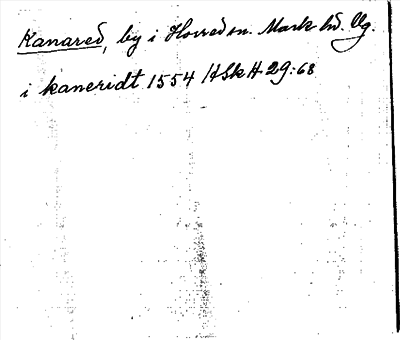 Kanared, by i Horred sn. Mark hd. Vg.
i kaneridt 1554 HSkH 29:68